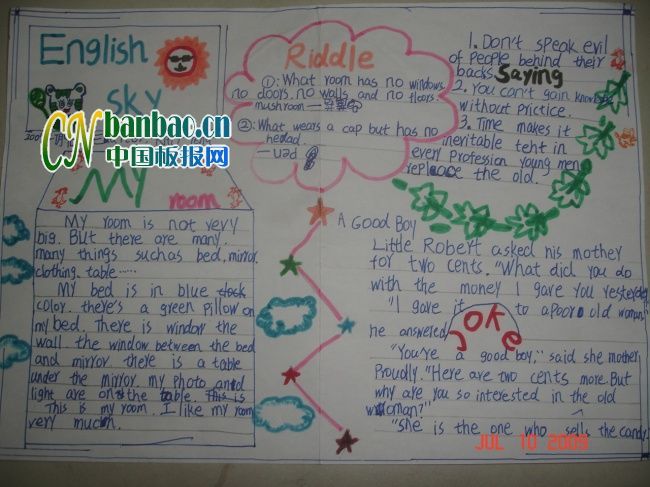 English
Sky
CNbanbao.cn
中国板报网
My
room
My room is not very
big. But there are many.
many things suchas bed, mirror
clothing table······
My bed is in blue
color. there's a green Pillow on
my bed. There is window the
wall the window between the bed
and mirror there is a table
under the mirror. my photo and
light are on the table. This is
This is my room. I like my room
very much.
Riddle
①: What room has no windows
no doors, no walls and no floors
mushroom —
②: What wears a cap but has no
head.
— pen
Saying
1. Don't speak evil
of People behind their
backs
2. You can't gain
without Prictice.
3. Time makes it
inevitable teht in
every Profession young men
replace the old.
A Good Boy
Little Robert asked his mother
for two cents. "What did you do
with the money I gave you yesterday
"I gave it to apoor old woman"
he answered
Joke
"You're a good boy," said she mother
Proudly. "Here are two cents more. But
why are you so interested in the old
woman?"
"She is the one who sells the candy.
JUL 10 2009